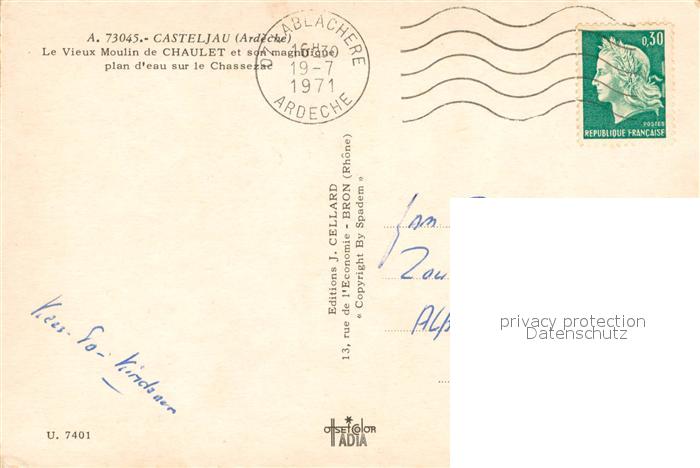 A. 73045.- CASTELJAU (Ardèche)
Le Vieux Moulin de CHAULET et son magnifique
plan d'eau sur le Chassezac
07 LABLACHERE
16H30
19-7
1971
ARDECHE
0,30
POSTES
REPUBLIQUE FRANÇAISE
Editions J. CELLARD
13, rue de l'Economie - BRON (Rhône)
« Copyright By Spadem »
privacy protection
Datenschutz
U. 7401
OFFSET COLOR
IADIA